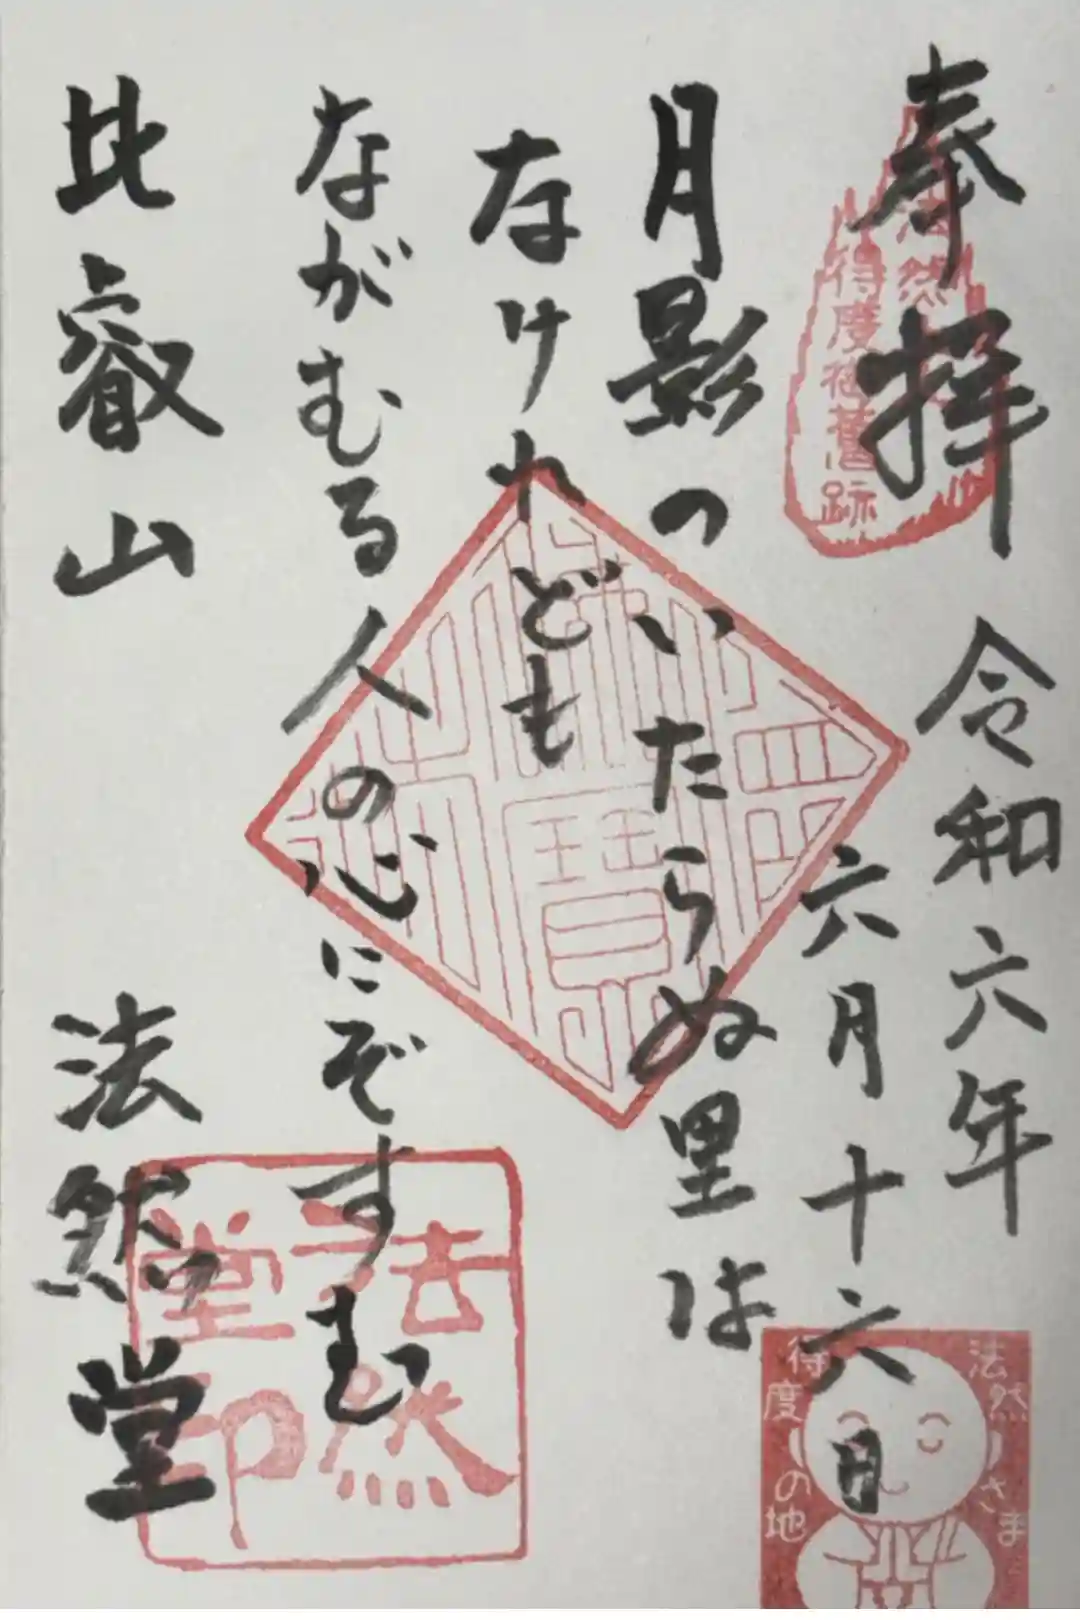 奉拝
法然
得度御舊跡
令和六年
六月十六日
月影のいたらぬ里は
なけれども
ながむる人の心にぞすむ
比叡山 法然堂
法然
堂印
法然さま
得度の地